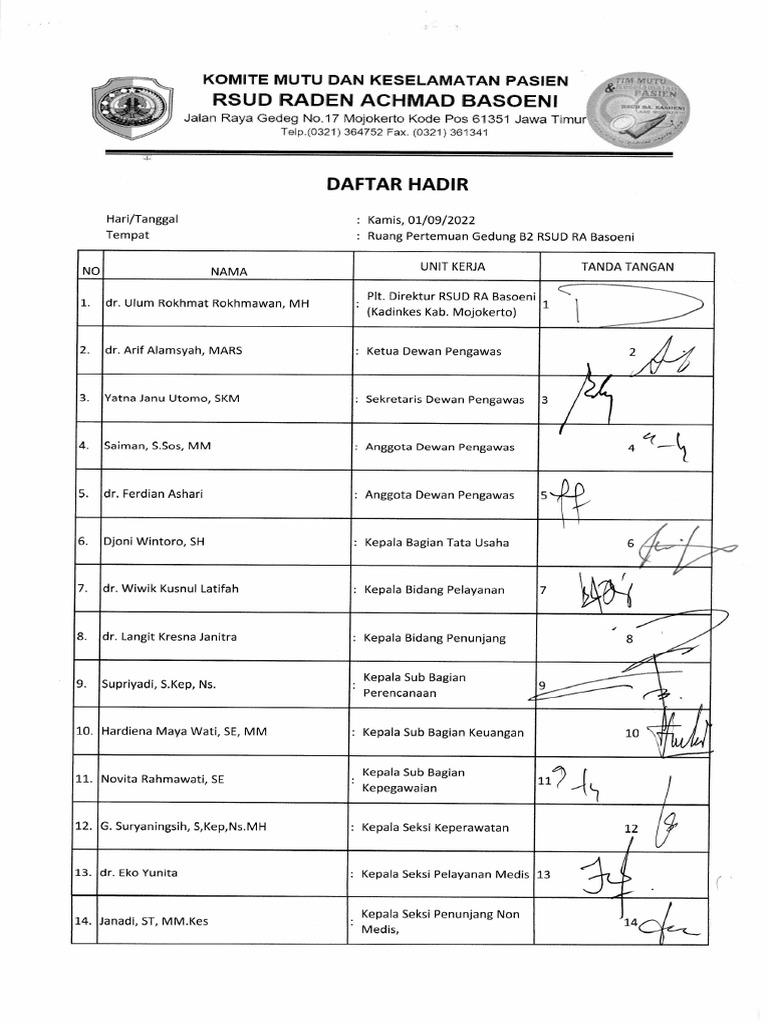 KOMITE MUTU DAN KESELAMATAN PASIEN
RSUD RADEN ACHMAD BASOENI
Jalan Raya Gedeg No.17 Mojokerto Kode Pos 61351 Jawa Timur
Telp.(0321) 364752 Fax. (0321) 361341
TIM MUTU
& Keselamatan
PASIEN
RSUD RA. BASOENI
DAFTAR HADIR
Hari/Tanggal : Kamis, 01/09/2022
Tempat : Ruang Pertemuan Gedung B2 RSUD RA Basoeni
NO NAMA UNIT KERJA TANDA TANGAN
1. dr. Ulum Rokhmat Rokhmawan, MH : Plt. Direktur RSUD RA Basoeni 1
(Kadinkes Kab. Mojokerto)
2. dr. Arif Alamsyah, MARS : Ketua Dewan Pengawas 2
3. Yatna Janu Utomo, SKM : Sekretaris Dewan Pengawas 3
4. Saiman, S.Sos, MM : Anggota Dewan Pengawas 4
5. dr. Ferdian Ashari : Anggota Dewan Pengawas 5
6. Djoni Wintoro, SH : Kepala Bagian Tata Usaha 6
7. dr. Wiwik Kusnul Latifah : Kepala Bidang Pelayanan 7
8. dr. Langit Kresna Janitra : Kepala Bidang Penunjang 8
9. Supriyadi, S.Kep, Ns. : Kepala Sub Bagian 9
Perencanaan
10. Hardiena Maya Wati, SE, MM : Kepala Sub Bagian Keuangan 10
11. Novita Rahmawati, SE : Kepala Sub Bagian 11
Kepegawaian
12. G. Suryaningsih, S,Kep,Ns.MH : Kepala Seksi Keperawatan 12
13. dr. Eko Yunita : Kepala Seksi Pelayanan Medis 13
14. Janadi, ST, MM.Kes : Kepala Seksi Penunjang Non 14
Medis,